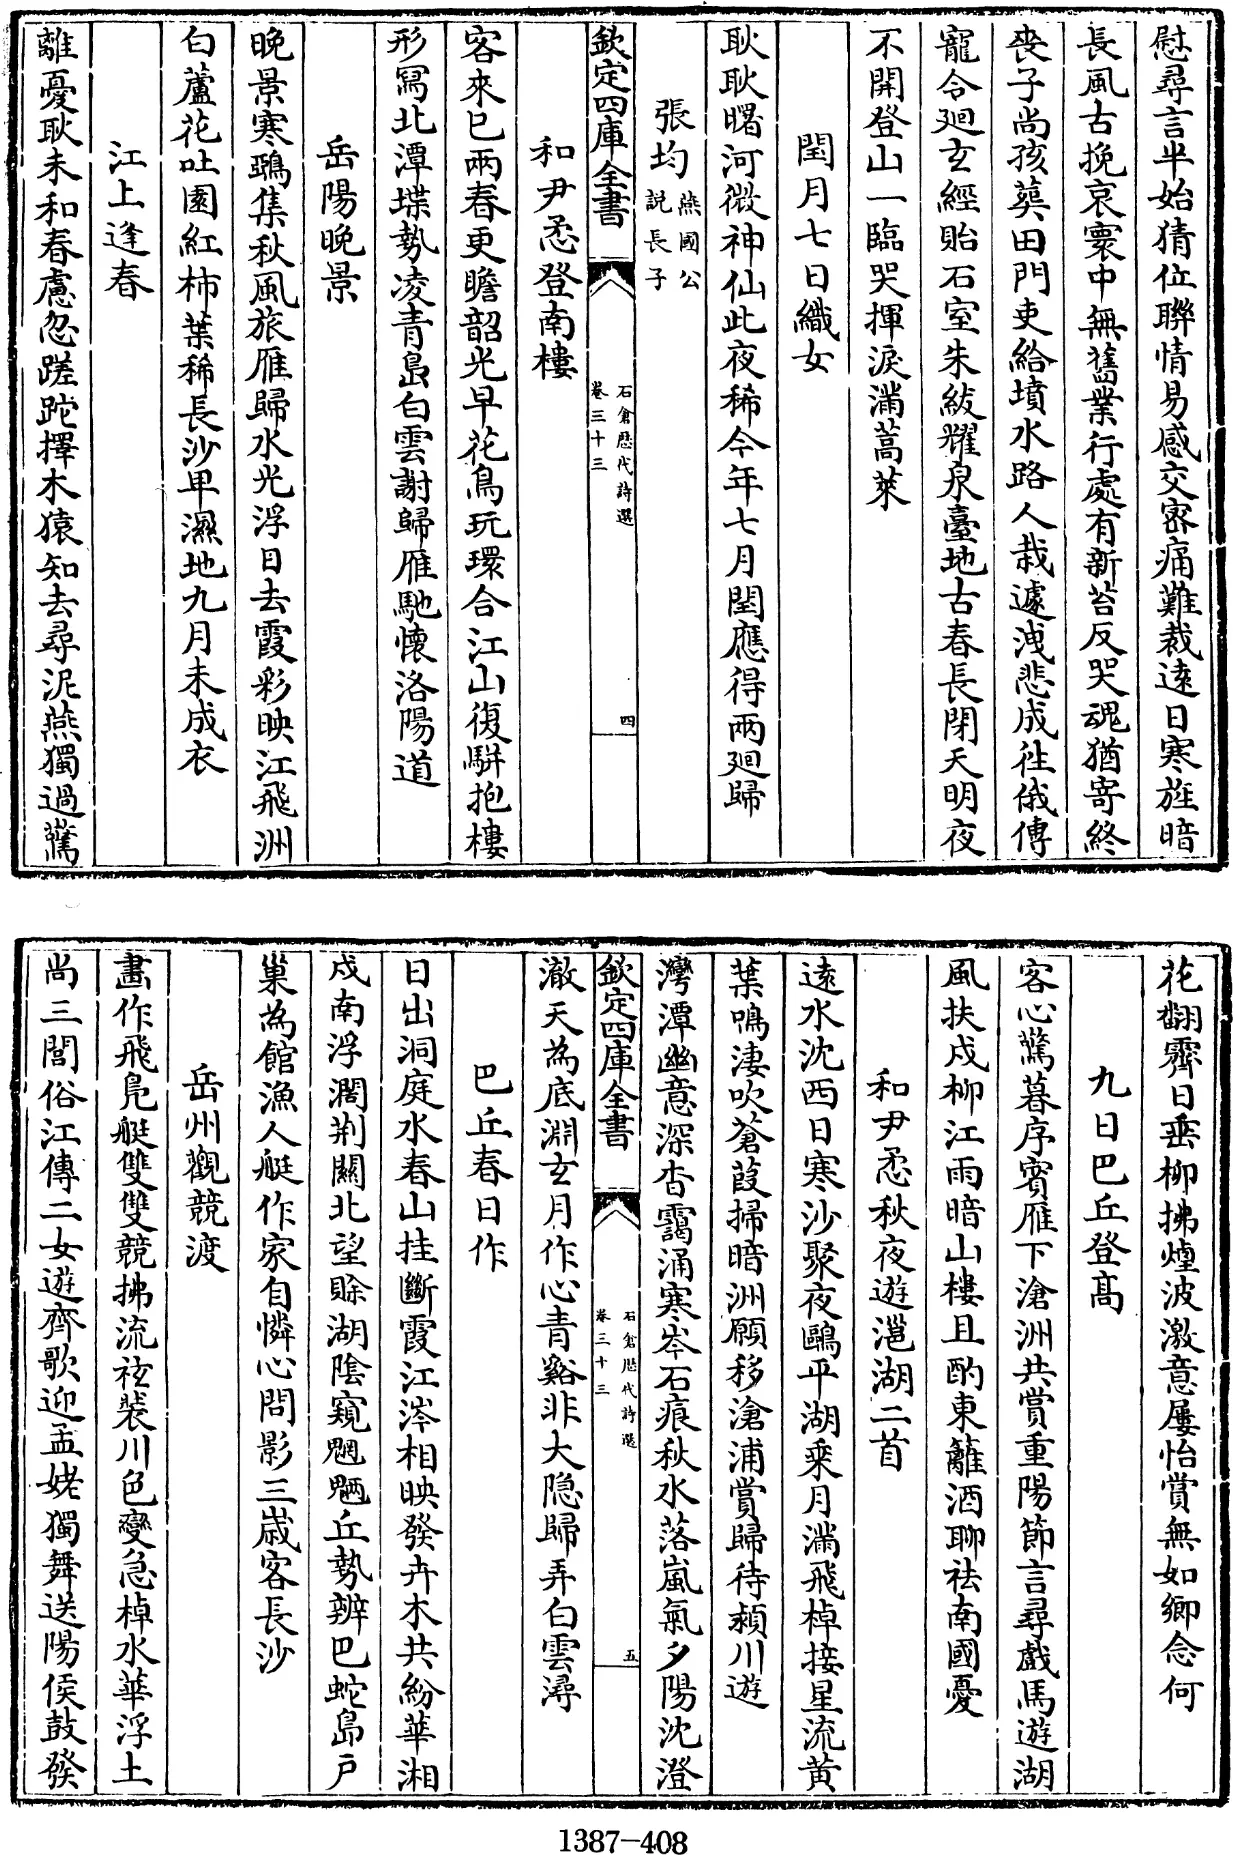 慰尋言半始猜位聯情易感交密痛難裁遠日寒旌暗
長風古挽哀寰中無舊業行處有新苔反哭魂猶寄終
喪子尚孩葬田門吏給墳水路人栽遽洩悲成往俄傳
寵令廻玄經貽石室朱紱耀泉臺地古春長閉天明夜
不開登山一臨哭揮淚滿蒿萊
閏月七日織女
耿耿曙河微神仙此夜稀今年七月閏應得兩廻歸
張均燕國公說長子
欽定四庫全書
石倉歷代詩選
卷三十三
四
和尹懋登南樓
客來已兩春更瞻韶光早花鳥玩環合江山復駢抱樓
形寫北潭堞勢凌青島白雲謝歸雁馳懷洛陽道
岳陽晚景
晚景寒鵶集秋風旅雁歸水光浮日去霞彩映江飛洲
白蘆花吐園紅柿葉稀長沙卑濕地九月未成衣
江上逢春
離憂耿未和春慮忽蹉跎擇木猿知去尋泥燕獨過驚
花翻霽日垂柳拂煙波激意屢怡賞無如鄉念何
九日巴丘登高
客心驚暮序賓雁下滄洲共賞重陽節言尋戲馬遊湖
風扶戍柳江雨暗山樓且酌東籬酒聊祛南國憂
和尹懋秋夜遊灉湖二首
遠水沈西日寒沙聚夜鷗平湖乘月滿飛棹接星流黄
葉鳴淒吹蒼葭掃暗洲願移滄浦賞歸待潁川遊
灣潭幽意深杳靄涌寒岑石痕秋水落嵐氣夕陽沈澄
欽定四庫全書
石倉歷代詩選
卷三十三
五
澈天為底淵玄月作心青谿非大隐歸弄白雲潯
巴丘春日作
日出洞庭水春山挂斷霞江涔相映發卉木共紛華湘
戍南浮濶荆關北望賒湖陰窺魍魎丘勢辨巴蛇島戶
巢為館漁人艇作家自憐心問影三歲客長沙
岳州觀競渡
畫作飛鳧艇雙雙競拂流袨裝川色變急棹水華浮土
尚三閭俗江傳二女遊齊歌迎孟姥獨舞送陽侯鼓發
1387-408